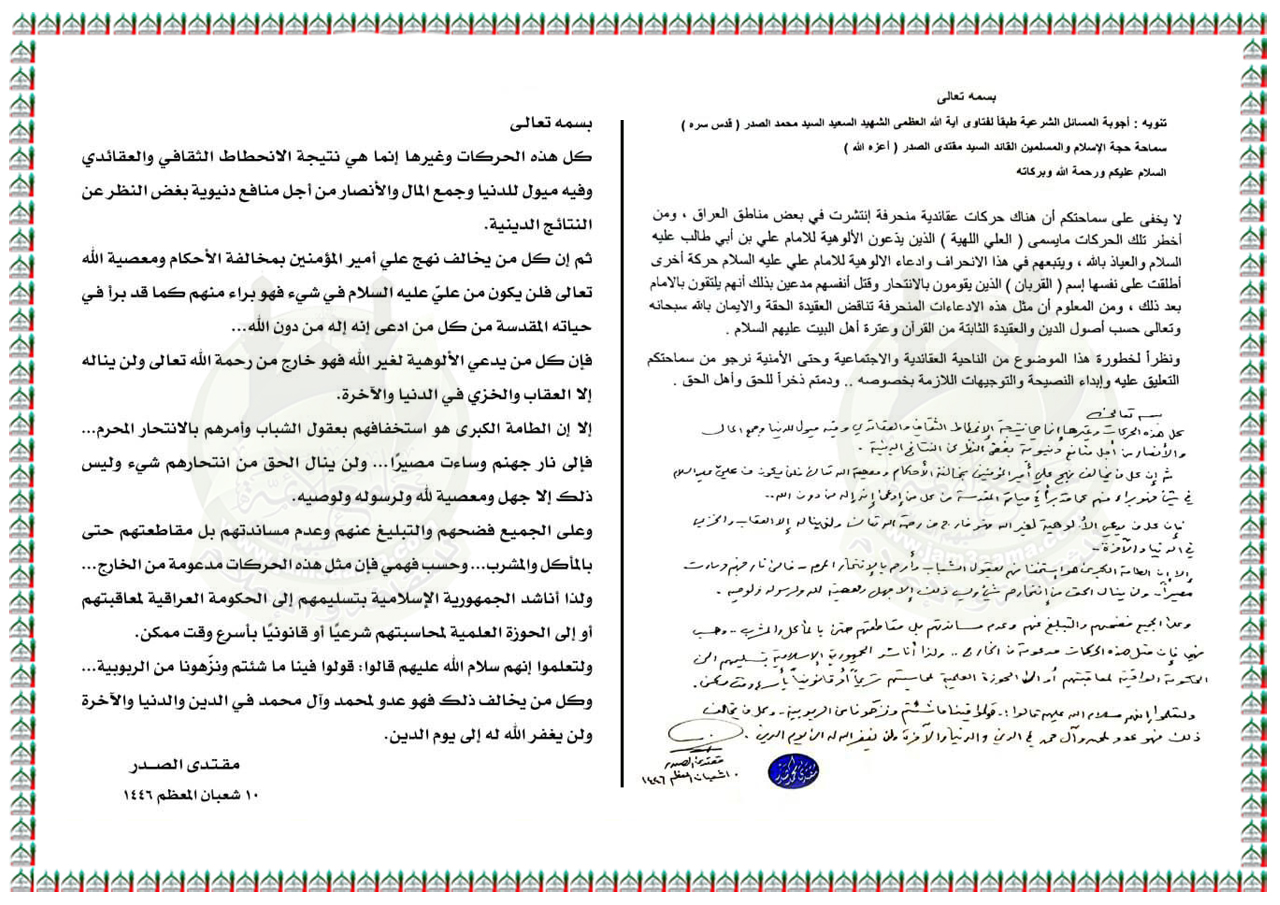 بسمه تعالى
تنويه : أجوبة المسائل الشرعية طبقاً لفتاوى آية الله العظمى الشهيد السعيد السيد محمد الصدر ( قدس سره )
سماحة حجة الإسلام والمسلمين القائد السيد مقتدى الصدر ( أعزه الله )
السلام عليكم ورحمة الله وبركاته
لا يخفى على سماحتكم أن هناك حركات عقائدية منحرفة إنتشرت في بعض مناطق العراق ، ومن
أخطر تلك الحركات مايسمى ( العلي اللهية ) الذين يدّعون الألوهية للامام علي بن أبي طالب عليه
السلام والعياذ بالله ، ويتبعهم في هذا الانحراف وادعاء الالوهية للامام علي عليه السلام حركة أخرى
أطلقت على نفسها إسم ( القربان ) الذين يقومون بالانتحار وقتل أنفسهم مدعين بذلك أنهم يلتقون بالامام
بعد ذلك ، ومن المعلوم أن مثل هذه الادعاءات المنحرفة تناقض العقيدة الحقة والايمان بالله سبحانه
وتعالى حسب أصول الدين والعقيدة الثابتة من القرآن وعترة أهل البيت عليهم السلام .
ونظراً لخطورة هذا الموضوع من الناحية العقائدية والاجتماعية وحتى الأمنية نرجو من سماحتكم
التعليق عليه وإبداء النصيحة والتوجيهات اللازمة بخصوصه .. ودمتم ذخراً للحق وأهل الحق .
بسمه تعالى
كل هذه الحركات وغيرها إنما هي نتيجة الانحطاط الثقافي والعقائدي وفيه ميول للدنيا وجمع المال
والأنصار من أجل منافع دنيوية بغض النظر عن النتائج الدينية .
ثم إن كل من يخالف نهج علي أمير المؤمنين بمخالفة الأحكام ومعصية الله تعالى فلن يكون من عليّ عليه السلام
في شيء فهو براء منهم كما قد برأ في حياته المقدسة من كل من ادعى إنه إله من دون الله ..
فإن كل من يدعي الألوهية لغير الله فهو خارج من رحمة الله تعالى ولن يناله إلا العقاب والخزي
في الدنيا والآخرة -
إلا إن الطامة الكبرى هو استخفافهم بعقول الشباب وأمرهم بالإنتحار المحرم - فإلى نار جهنم وساءت
مصيراً - ولن ينال الحق من إنتحارهم شيء وليس ذلك إلا جهل ومعصية لله ولرسوله ولوصيه .
وعلى الجميع فضحهم والتبليغ عنهم وعدم مساندتهم بل مقاطعتهم حتى بالمأكل والمشرب .. وحسب
فهمي فإن مثل هذه الحركات مدعومة من الخارج .. ولذا أناشد الجمهورية الإسلامية بتسليمهم الى
الحكومة العراقية لمعاقبتهم أو الى الحوزة العلمية لمحاسبتهم شرعياً أو قانونياً بأسرع وقت ممكن .
ولتعلموا إنهم سلام الله عليهم قالوا : قولوا فينا ما شئتم ونزهونا من الربوبية - وكل من يخالف
ذلك فهو عدو لمحمد وآل محمد في الدين والدنيا والآخرة ولن يغفر الله له الى يوم الدين .
مقتدى الصدر
١٠ شعبان المعظم ١٤٤٦
بسمه تعالى
كل هذه الحركات وغيرها إنما هي نتيجة الانحطاط الثقافي والعقائدي
وفيه ميول للدنيا وجمع المال والأنصار من أجل منافع دنيوية بغض النظر عن
النتائج الدينية.
ثم إن كل من يخالف نهج علي أمير المؤمنين بمخالفة الأحكام ومعصية الله
تعالى فلن يكون من عليّ عليه السلام في شيء فهو براء منهم كما قد برأ في
حياته المقدسة من كل من ادعى إنه إله من دون الله...
فإن كل من يدعي الألوهية لغير الله فهو خارج من رحمة الله تعالى ولن يناله
إلا العقاب والخزي في الدنيا والآخرة.
إلا إن الطامة الكبرى هو استخفافهم بعقول الشباب وأمرهم بالانتحار المحرم...
فإلى نار جهنم وساءت مصيرًا... ولن ينال الحق من انتحارهم شيء وليس
ذلك إلا جهل ومعصية لله ولرسوله ولوصيه.
وعلى الجميع فضحهم والتبليغ عنهم وعدم مساندتهم بل مقاطعتهم حتى
بالمأكل والمشرب... وحسب فهمي فإن مثل هذه الحركات مدعومة من الخارج...
ولذا أناشد الجمهورية الإسلامية بتسليمهم إلى الحكومة العراقية لمعاقبتهم
أو إلى الحوزة العلمية لمحاسبتهم شرعيًا أو قانونيًا بأسرع وقت ممكن.
ولتعلموا إنهم سلام الله عليهم قالوا: قولوا فينا ما شئتم ونزّهونا من الربوبية...
وكل من يخالف ذلك فهو عدو لمحمد وآل محمد في الدين والدنيا والآخرة
ولن يغفر الله له إلى يوم الدين.
مقتدى الصدر
١٠ شعبان المعظم ١٤٤٦
www.jam3aama.com